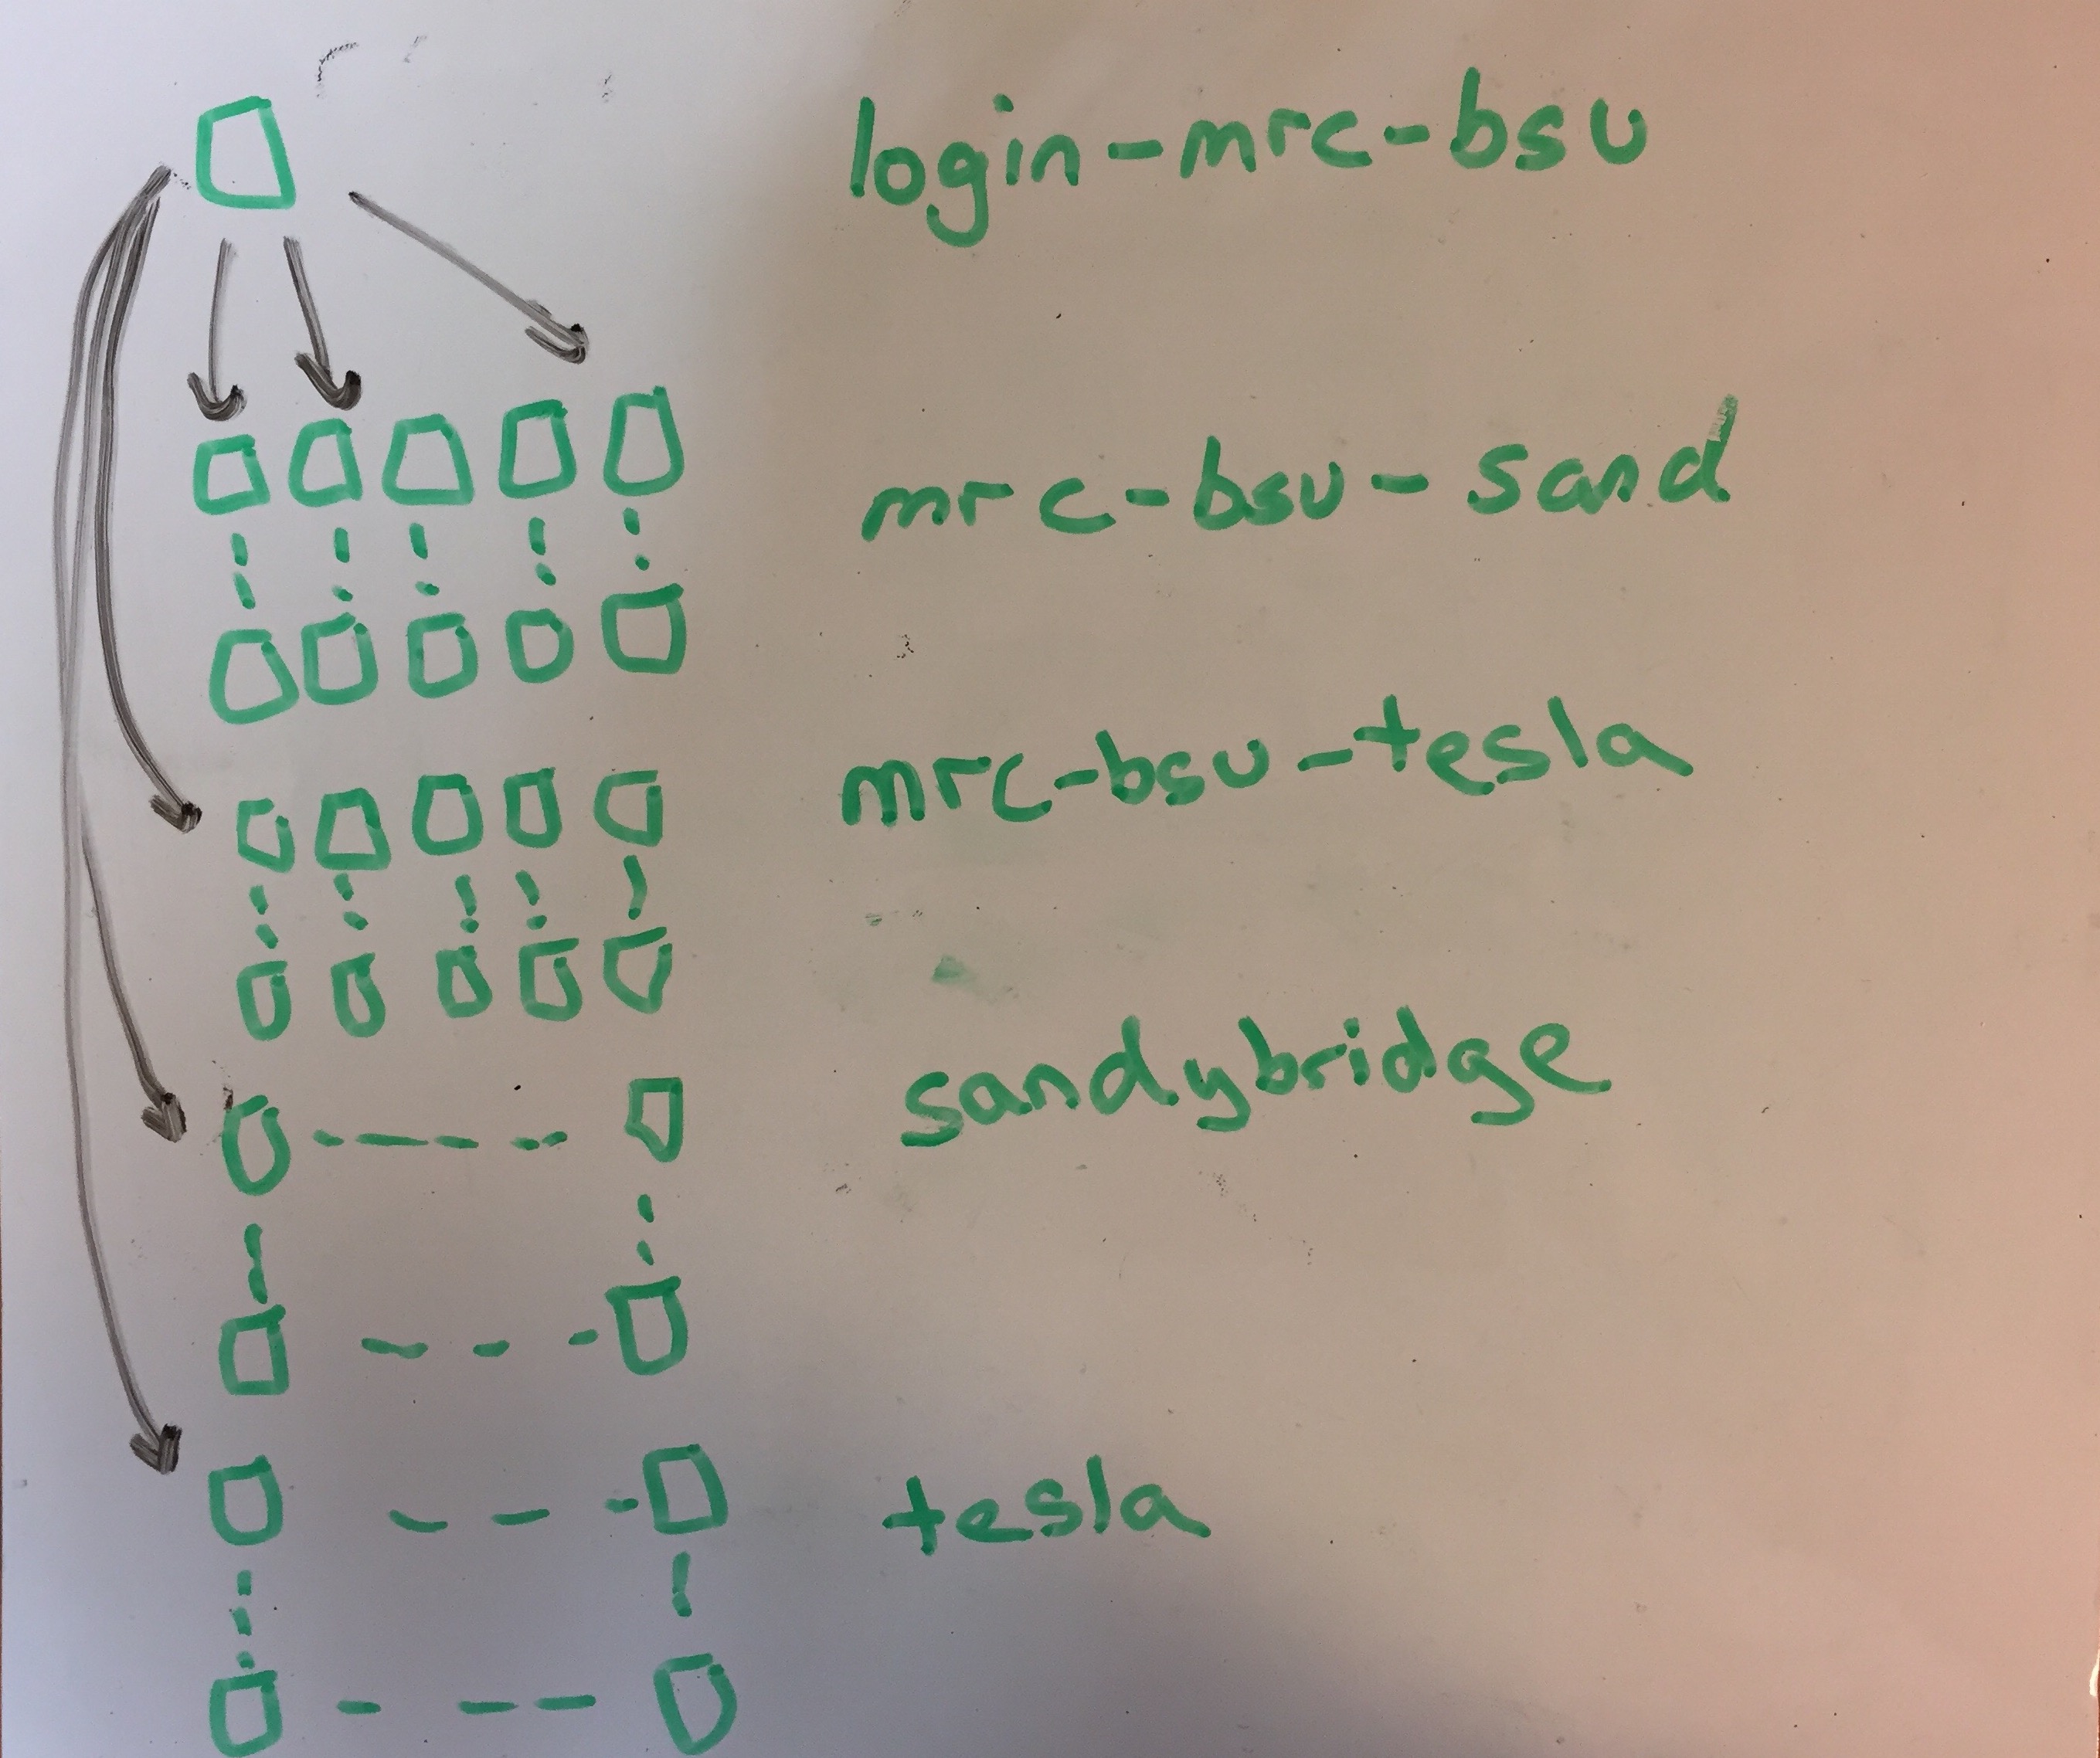 login-mrc-bsu
mrc-bsu-sand
mrc-bsu-tesla
sandybridge
tesla